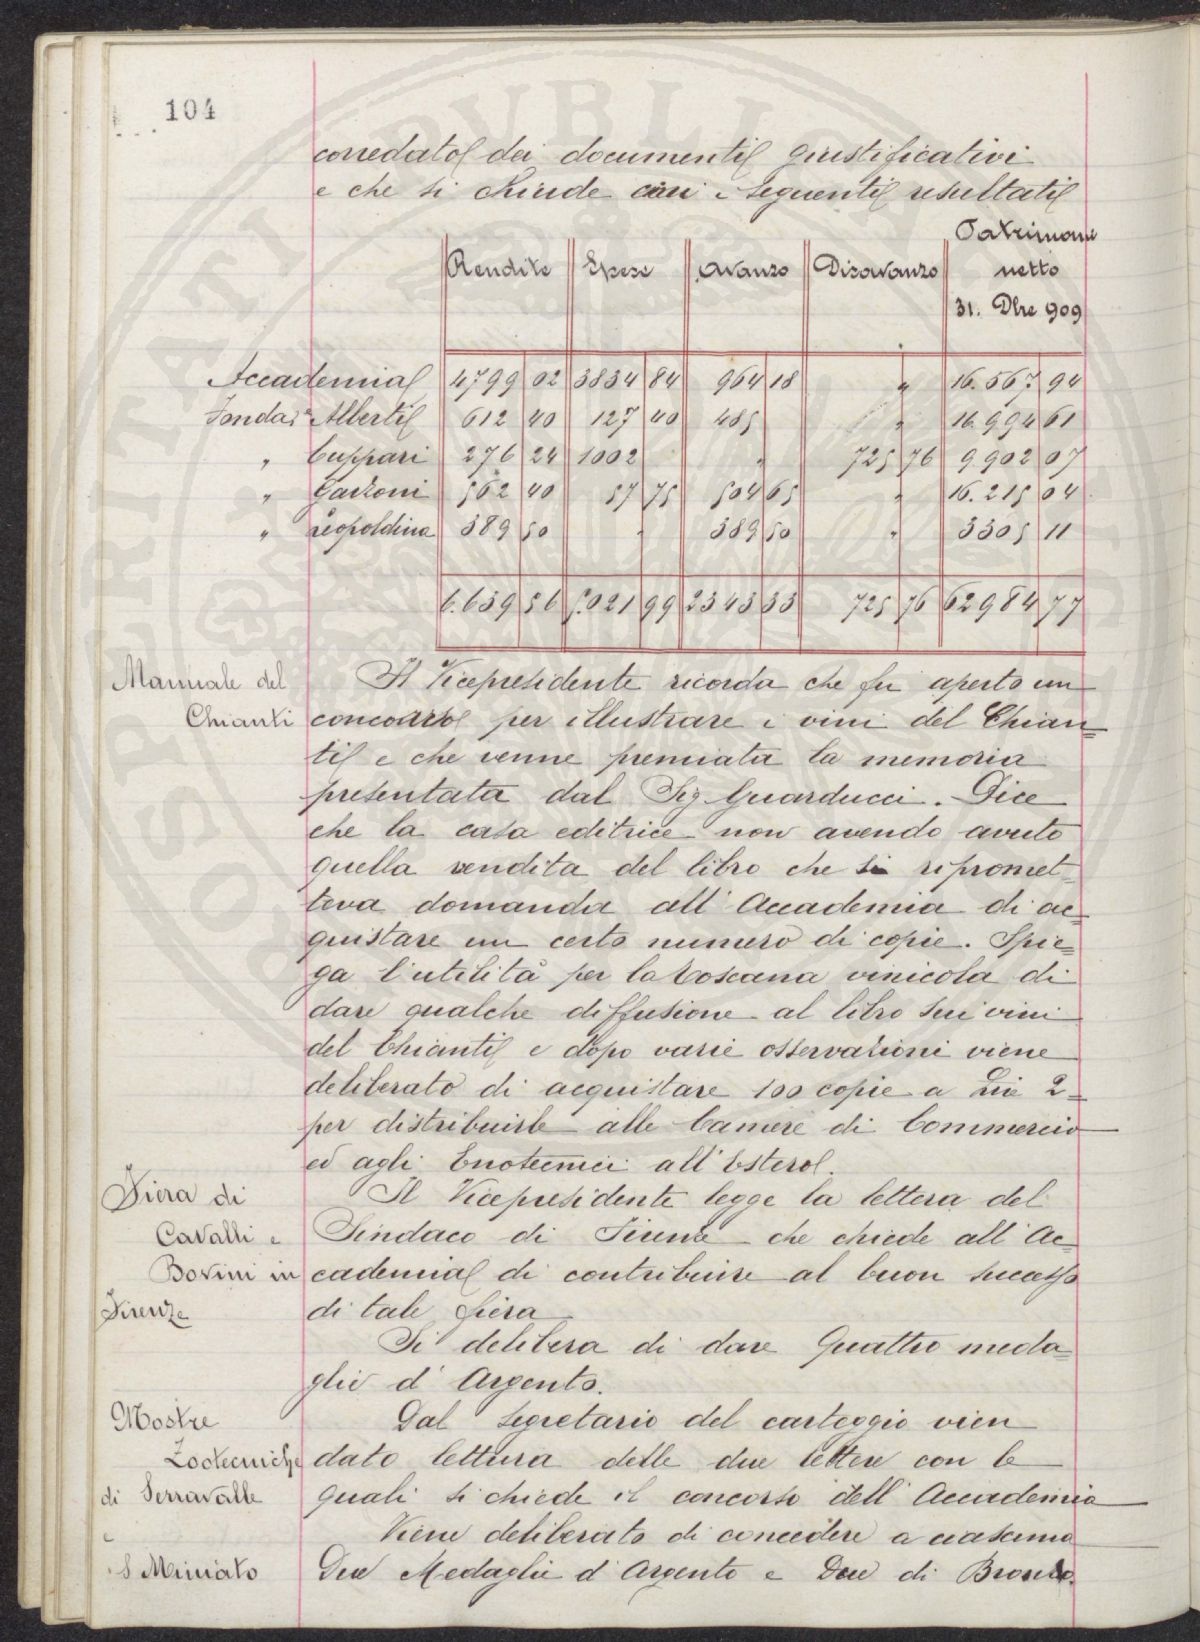 104
corredato dei documenti giustificativi
e che si chiude coi seguenti resultati
Rendite Spese Avanzo Disavanzo Patrimonio netto 31. Dbre 909
Accademia 4799 02 3834 84 964 18 " 16.567 94
Fondas Alberti 612 40 127 40 485 " 16.994 61
" Cuppari 276 24 1002 " 725 76 9902 07
" Garzoni 562 40 57 75 504 65 " 16.215 04
" Leopoldina 389 50 " 389 50 " 3305 11
6.639 56 5.021 99 2343 33 725 76 62984 77
Manuale del
Chianti
Il Vicepresidente ricorda che fu aperto un
concorso per illustrare i vini del Chian=
ti e che venne premiata la memoria
presentata dal Sig Guarducci. Dice
che la casa editrice non avendo avuto
quella vendita del libro che si ripromet=
teva domanda all'Accademia di ac=
quistare un certo numero di copie. Spie=
ga l'utilità per la Toscana vinicola di
dare qualche diffusione al libro sui vini
del Chianti e dopo varie osservazioni viene
deliberato di acquistare 100 copie a Lire 2=
per distribuirle alle Camere di Commercio
ed agli Enotecnici all'Estero.
Fiera di
Cavalli e
Bovini in
Firenze
Il Vicepresidente legge la lettera del
Sindaco di Firenze che chiede all'Ac=
cademia di contribuire al buon successo
di tale fiera
Si delibera di dare Quattro meda=
glie d'Argento.
Mostre
Zootecniche
di Serravalle
e
S Miniato
Dal Segretario del carteggio vien
dato lettura delle due lettere con le
quali si chiede il concorso dell'Accademia
Viene deliberato di concedere a ciascuna
Due Medaglie d'Argento e Due di Bronzo.